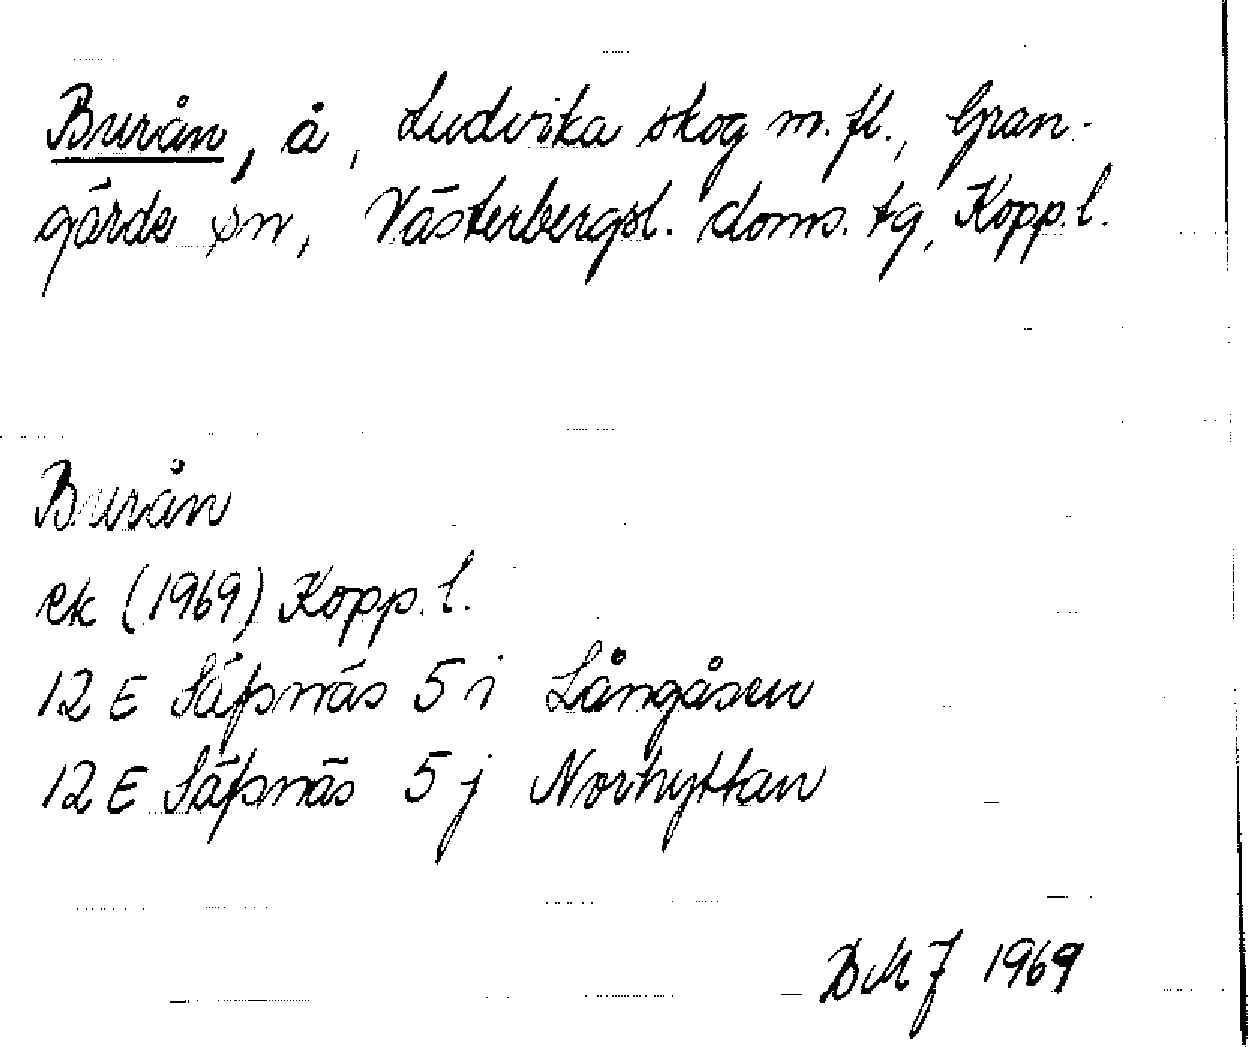 Burån, å, Ludvika skog m. fl., Gran-
gärde sn, Västerbergsl. doms. tg, Kopp. l.
Burån
ek (1969) Kopp. l.
12 E Säfsnäs 5 i Långåsen
12 E Säfsnäs 5 j Norhyttan
BMJ 1969